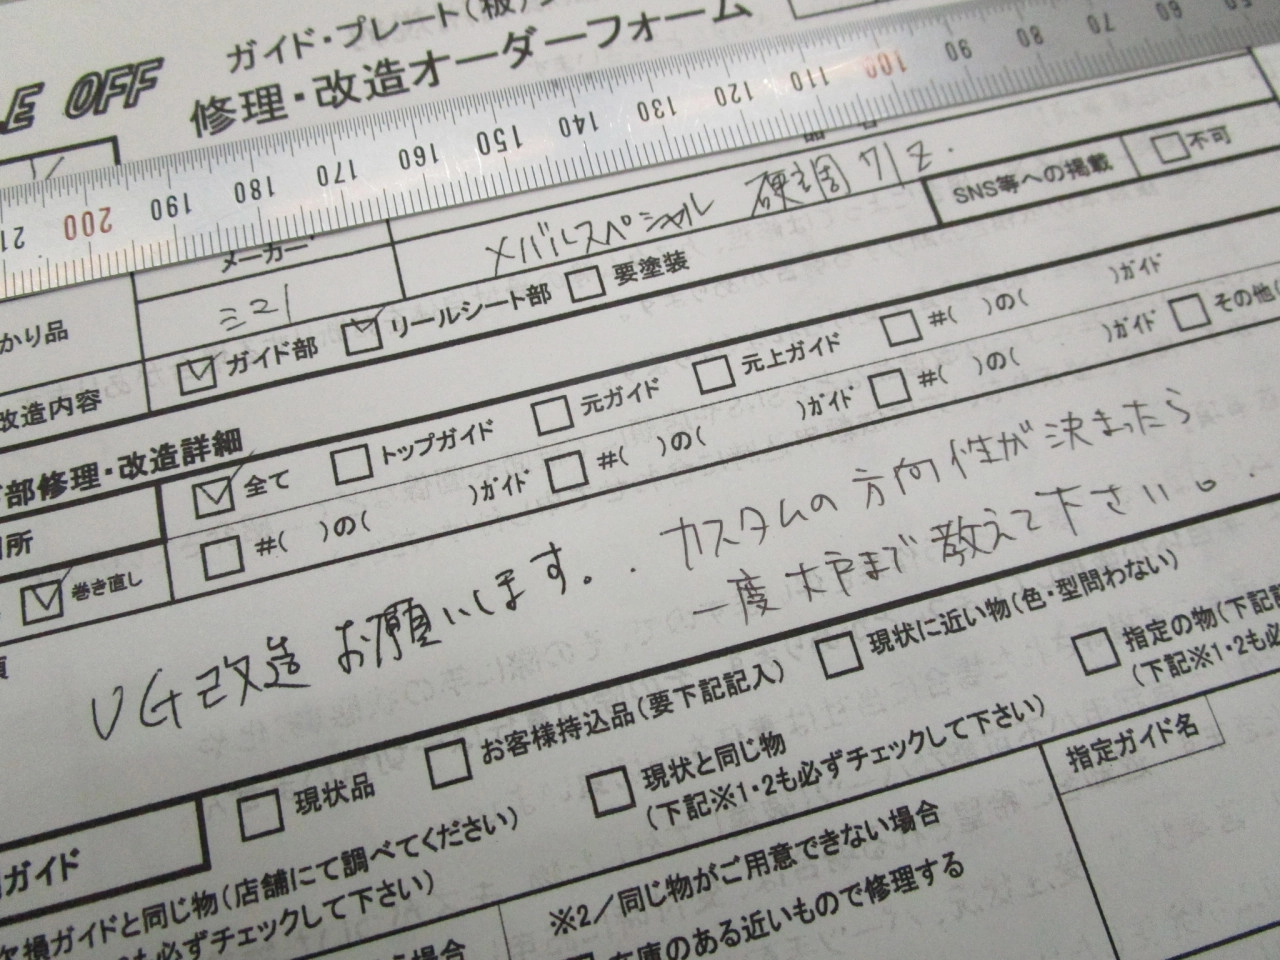 ガイド・プレート(板)
E OFF
修理・改造オーダーフォーム
50 60 70 80 90 100 110 120 130 140 150 160 170 180 190 200 21
メーカー
メバルスペシャル 硬調
SNS等への掲載 不可
かり品
改造内容
ガイド部 リールシート部 要塗装
部修理・改造詳細
所
全て トップガイド 元ガイド 元上ガイド #( )の( )ガイド
#( )の( )ガイド #( )の( )ガイド #( )の( )ガイド その他(
巻き直し
VG改造 お願いします。. カスタムの方向性が決まったら
一度 まで教えて下さい。.
現状品 お客様持込品(要下記記入) 現状に近い物(色・型問わない)
現状と同じ物
(下記※1・2も必ずチェックして下さい)
指定の物(下記
(下記※1・2も必
ガイド
欠損ガイドと同じ物(店舗にて調べてください)
も必ずチェックして下さい)
指定ガイド名
※2/同じ物がご用意できない場合
在庫のある近いもので修理する
場合